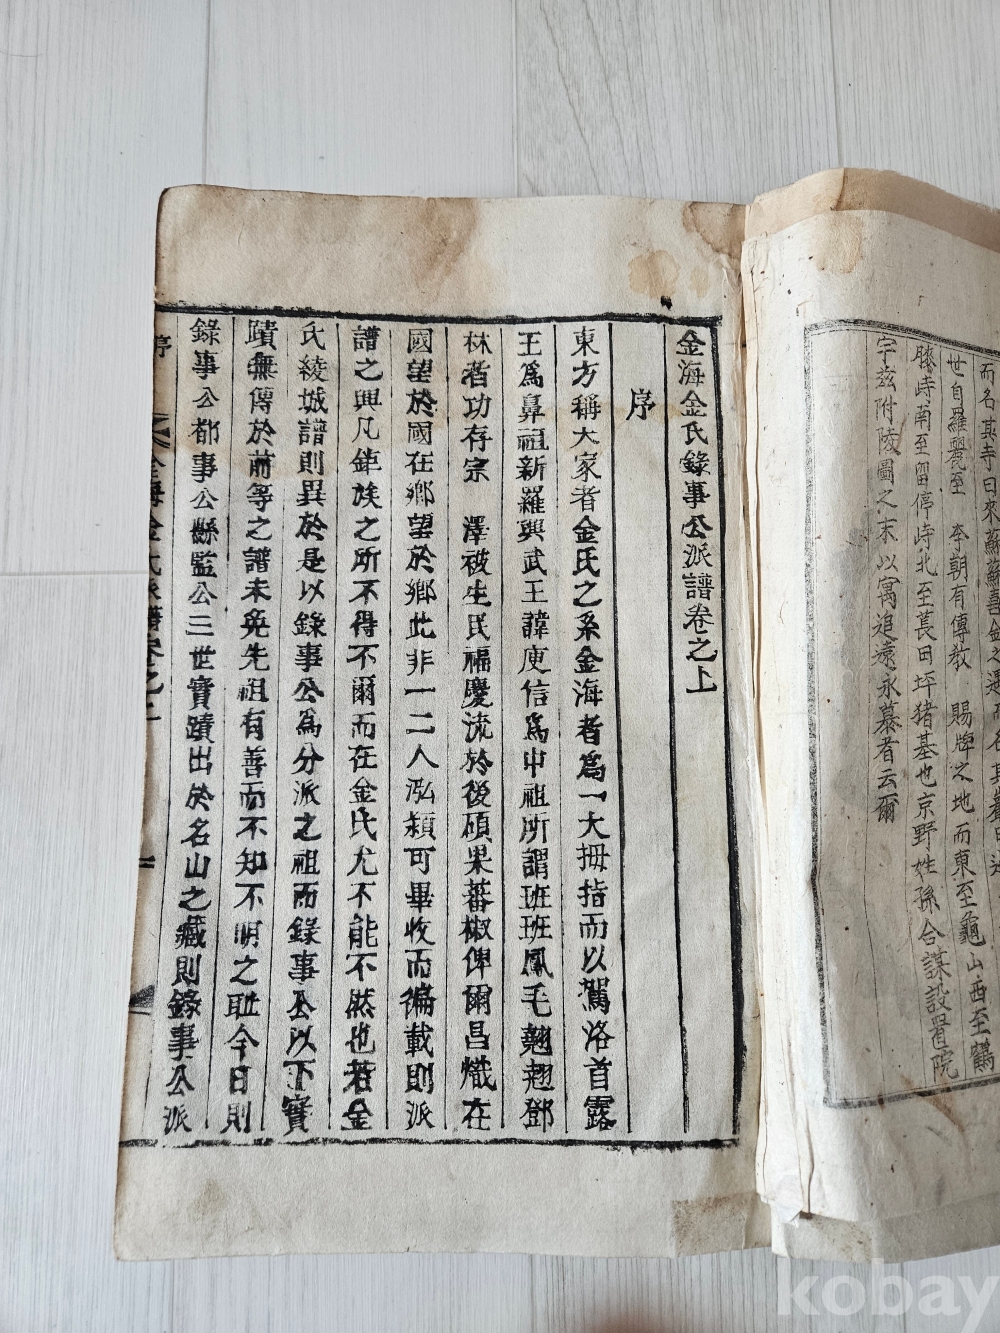 而名其寺曰來蘇
世自羅麗至 李朝有傳教 賜牌之地而東至龜山西至鶴
膝峙南至留停峙北至萇田坪猪基也京野姓孫合謀設置院
宇玆附陵圖之末以寓追遠永慕者云爾
金海金氏錄事公派譜卷之上
序
東方稱大家者金氏之系金海者爲一大拇指而以駕洛首露
王爲鼻祖新羅興武王諱庾信爲中祖所謂班班鳳毛翹翹鄧
林者功存宗 澤被生民福慶流於後碩果蕃椒俾爾昌熾在
國望於國在鄕望於鄕此非一二人泓穎可畢收而徧載則派
譜之興凡鉅族之所不得不爾而在金氏尤不能不然也若金
氏綾城譜則異於是以錄事公爲分派之祖而錄事公以下實
蹟無傳於前等之譜未免先祖有善而不知不明之耻今日則
錄事公都事公縣監公三世實蹟出於名山之藏則錄事公派
序
金海金氏派譜卷之上
kobay